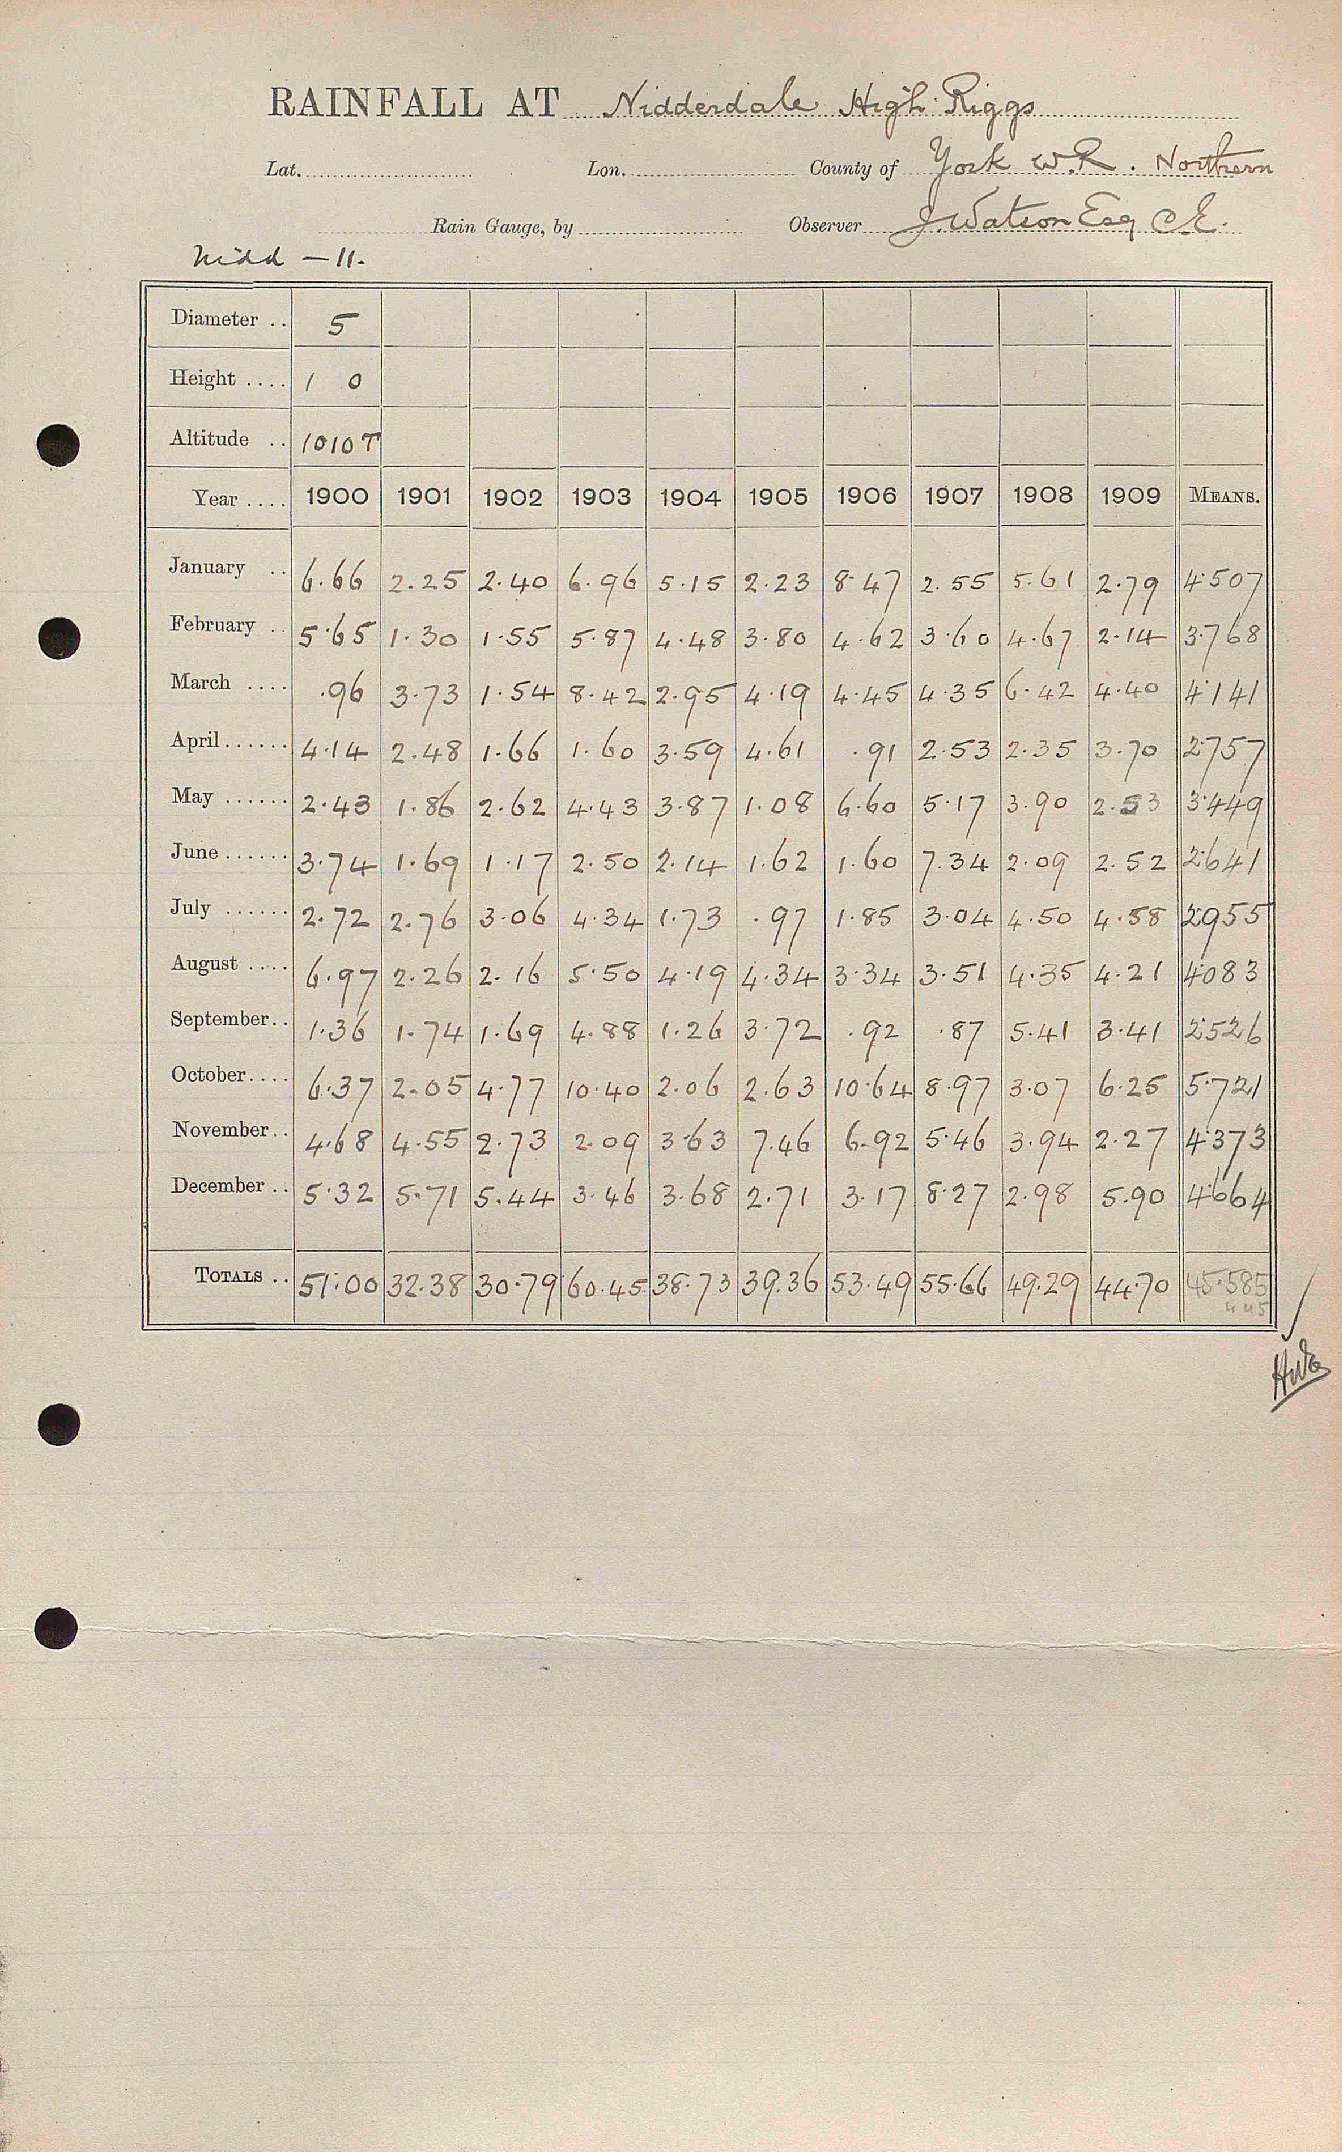 RAINFALL AT Nidderdale High Riggs
Lat. Lon. County of York W.R. Northern
Rain Gauge, by Observer J. Watson Esq C.E.
Nidd - 11.
Diameter .. 5
Height .... 1 0
Altitude .. 1010 T
Year .... 1900 1901 1902 1903 1904 1905 1906 1907 1908 1909 MEANS.
January .. 6.66 2.25 2.40 6.96 5.15 2.23 8.47 2.55 5.61 2.79 4.507
February .. 5.65 1.30 1.55 5.87 4.48 3.80 4.62 3.60 4.67 2.14 3.768
March .... .96 3.73 1.54 8.42 2.95 4.19 4.45 4.35 6.42 4.40 4.141
April...... 4.14 2.48 1.66 1.60 3.59 4.61 .91 2.53 2.35 3.70 2.757
May ...... 2.43 1.86 2.62 4.43 3.87 1.08 6.60 5.17 3.90 2.53 3.449
June...... 3.74 1.69 1.17 2.50 2.14 1.62 1.60 7.34 2.09 2.52 2.641
July ...... 2.72 2.76 3.06 4.34 1.73 .97 1.85 3.04 4.50 4.58 2.955
August .... 6.97 2.26 2.16 5.50 4.19 4.34 3.34 3.51 4.35 4.21 4.083
September.. 1.36 1.74 1.69 4.88 1.26 3.72 .92 .87 5.41 3.41 2.526
October.... 6.37 2.05 4.77 10.40 2.06 2.63 10.64 8.97 3.07 6.25 5.721
November.. 4.68 4.55 2.73 2.09 3.63 7.46 6.92 5.46 3.94 2.27 4.373
December .. 5.32 5.71 5.44 3.46 3.68 2.71 3.17 8.27 2.98 5.90 4.664
TOTALS .. 51.00 32.38 30.79 60.45 38.73 39.36 53.49 55.66 49.29 44.70 45.585
445